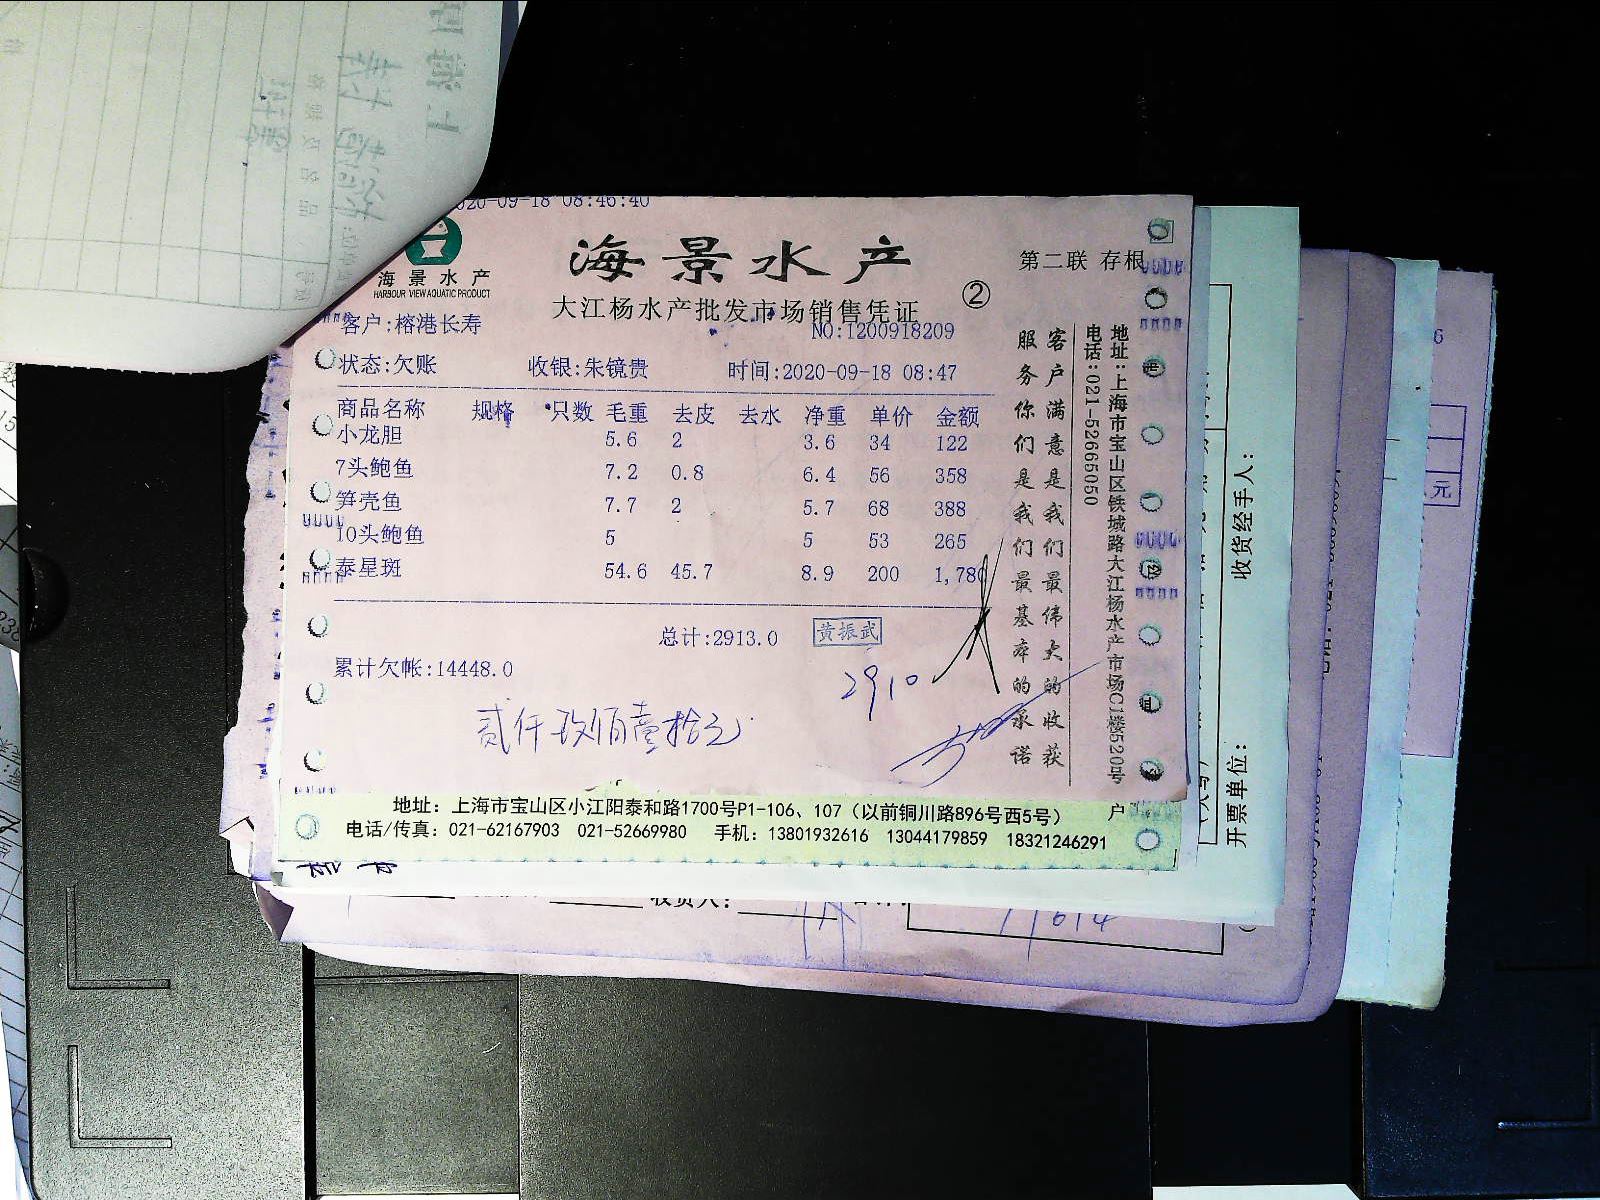 2020-09-18 08:46:40
海景水产
HARBOUR VIEW AQUATIC PRODUCT
海景水产
第二联 存根
大江杨水产批发市场销售凭证
②
客户:榕港长寿
NO:1200918209
状态:欠账 收银:朱镜贵 时间:2020-09-18 08:47
商品名称 规格 只数 毛重 去皮 去水 净重 单价 金额
小龙胆 5.6 2 3.6 34 122
7头鲍鱼 7.2 0.8 6.4 56 358
笋壳鱼 7.7 2 5.7 68 388
10头鲍鱼 5 5 53 265
泰星斑 54.6 45.7 8.9 200 1,780
总计:2913.0 黄振武
累计欠帐:14448.0
2910
贰仟玖佰壹拾元
客户满意是我们最伟大的收获
服务你们是我们最基本的承诺
地址:上海市宝山区铁城路大江杨水产市场C1楼520号
电话:021-52665050
地址：上海市宝山区小江阳泰和路1700号P1-106、107（以前铜川路896号西5号）
电话/传真：021-62167903 021-52669980 手机：13801932616 13044179859 18321246291
户
收货经手人：
开票单位：
收货人：
元